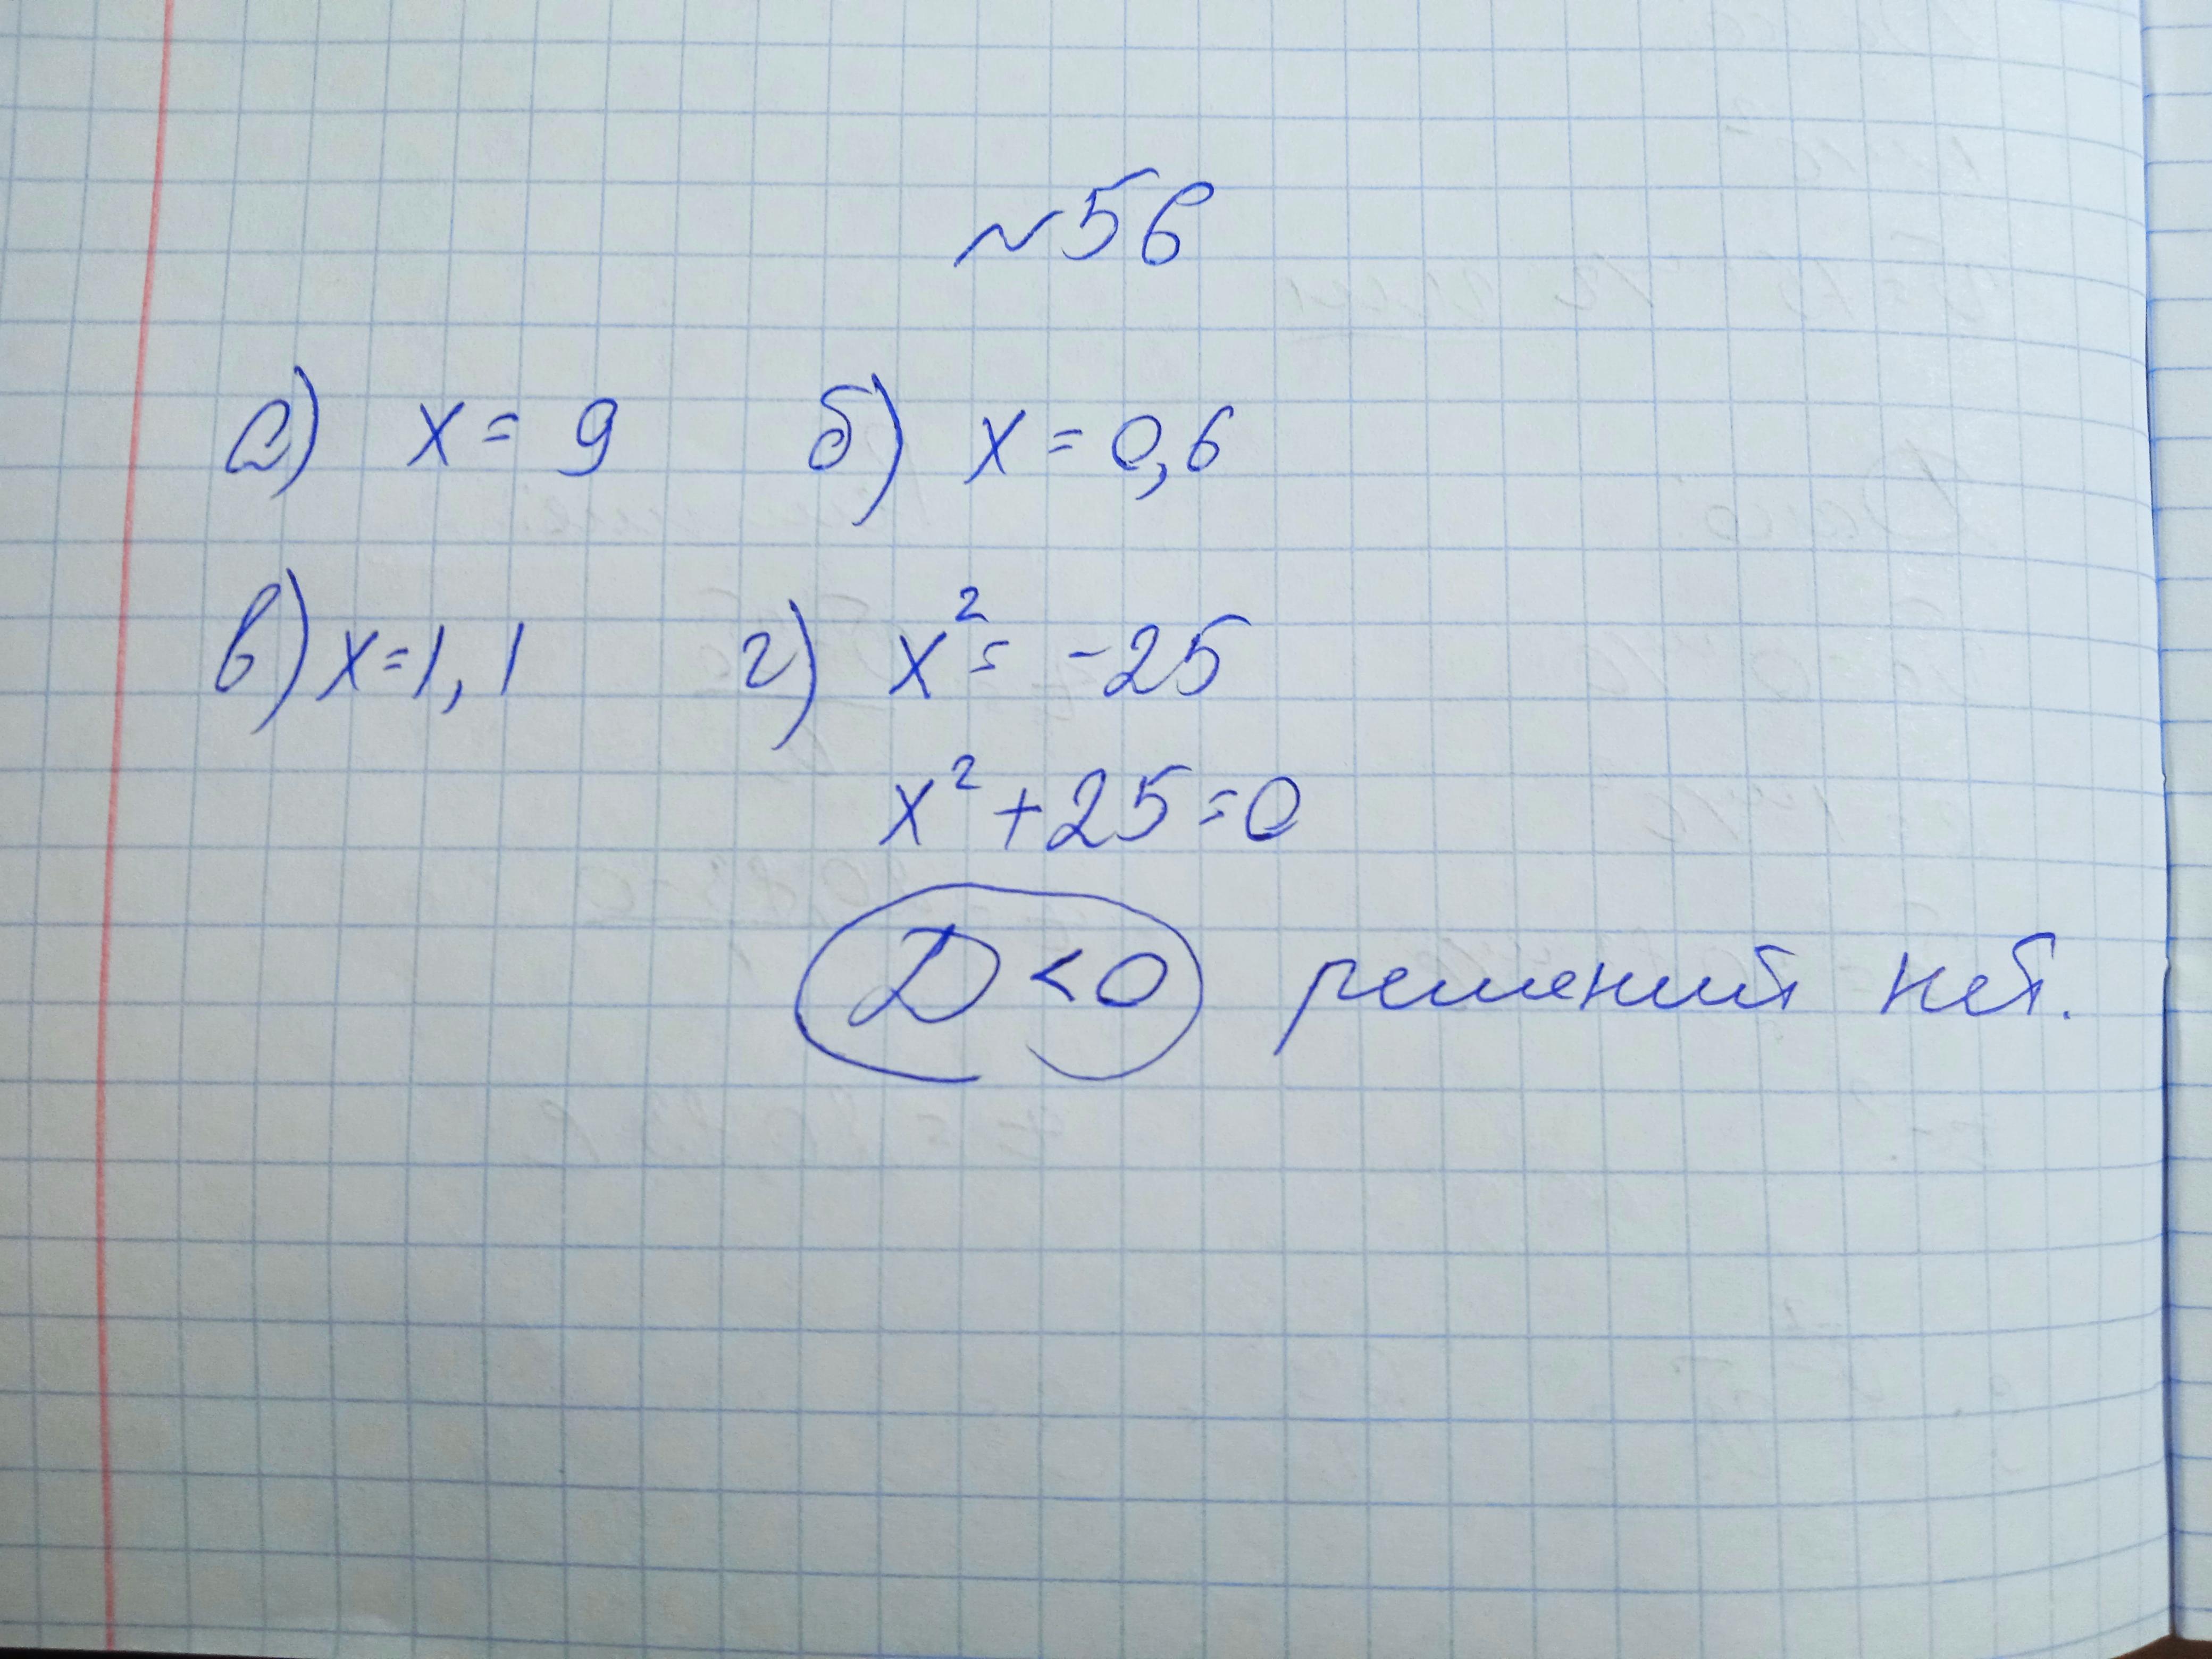 ~56
а) x = 9 б) x = 0,6
в) x=1,1 г) x² = -25
x² + 25 = 0
D < 0 решений нет.